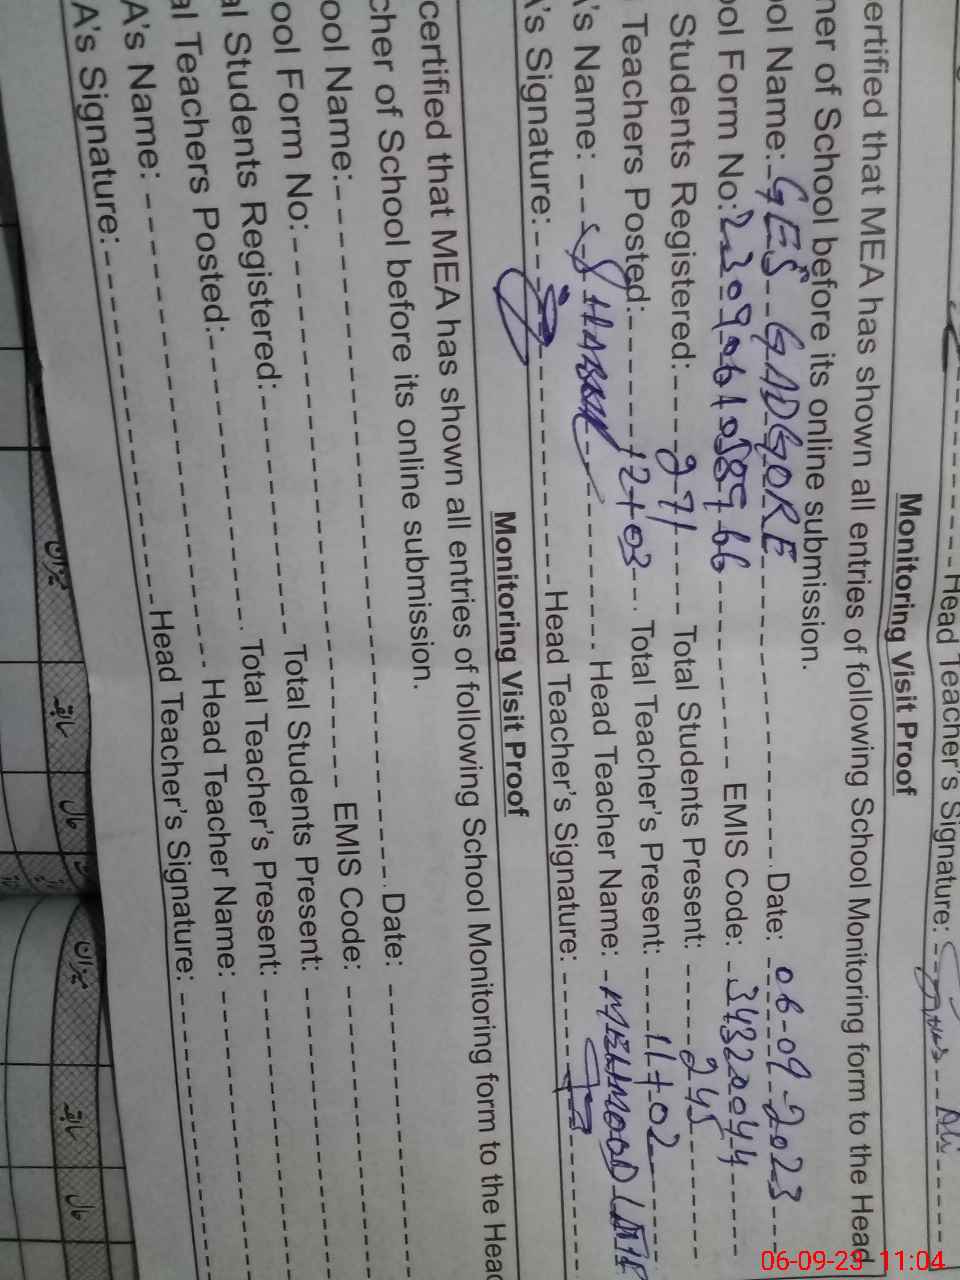 Head Teacher's Signature:
Monitoring Visit Proof
ertified that MEA has shown all entries of following School Monitoring form to the Head
her of School before its online submission.
ool Name: GES GADGORE Date: 06-09-2023
ool Form No: EMIS Code: 34320044
Students Registered: 271 Total Students Present: 245
Teachers Posted: 12+03 Total Teacher's Present: 11+02
's Name: Head Teacher Name: MEHMOOD
A's Signature: Head Teacher's Signature:
Monitoring Visit Proof
certified that MEA has shown all entries of following School Monitoring form to the Head
cher of School before its online submission.
ool Name: Date:
ool Form No: EMIS Code:
al Students Registered: Total Students Present:
al Teachers Posted: Total Teacher's Present:
A's Name: Head Teacher Name:
A's Signature: Head Teacher's Signature:
میزان
سابقہ
حال
میزان
سابقہ
حال
06-09-23 11:04